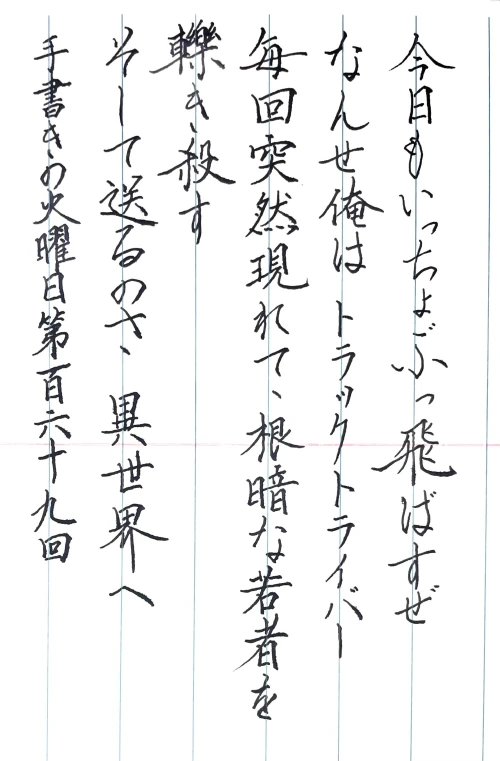 今日もいっちょぶっ飛ばすぜ
なんせ俺はトラックトライバー
毎回突然現れて、根暗な若者を
轢き殺す
そして送るのさ、異世界へ
手書きの火曜日第百六十九回